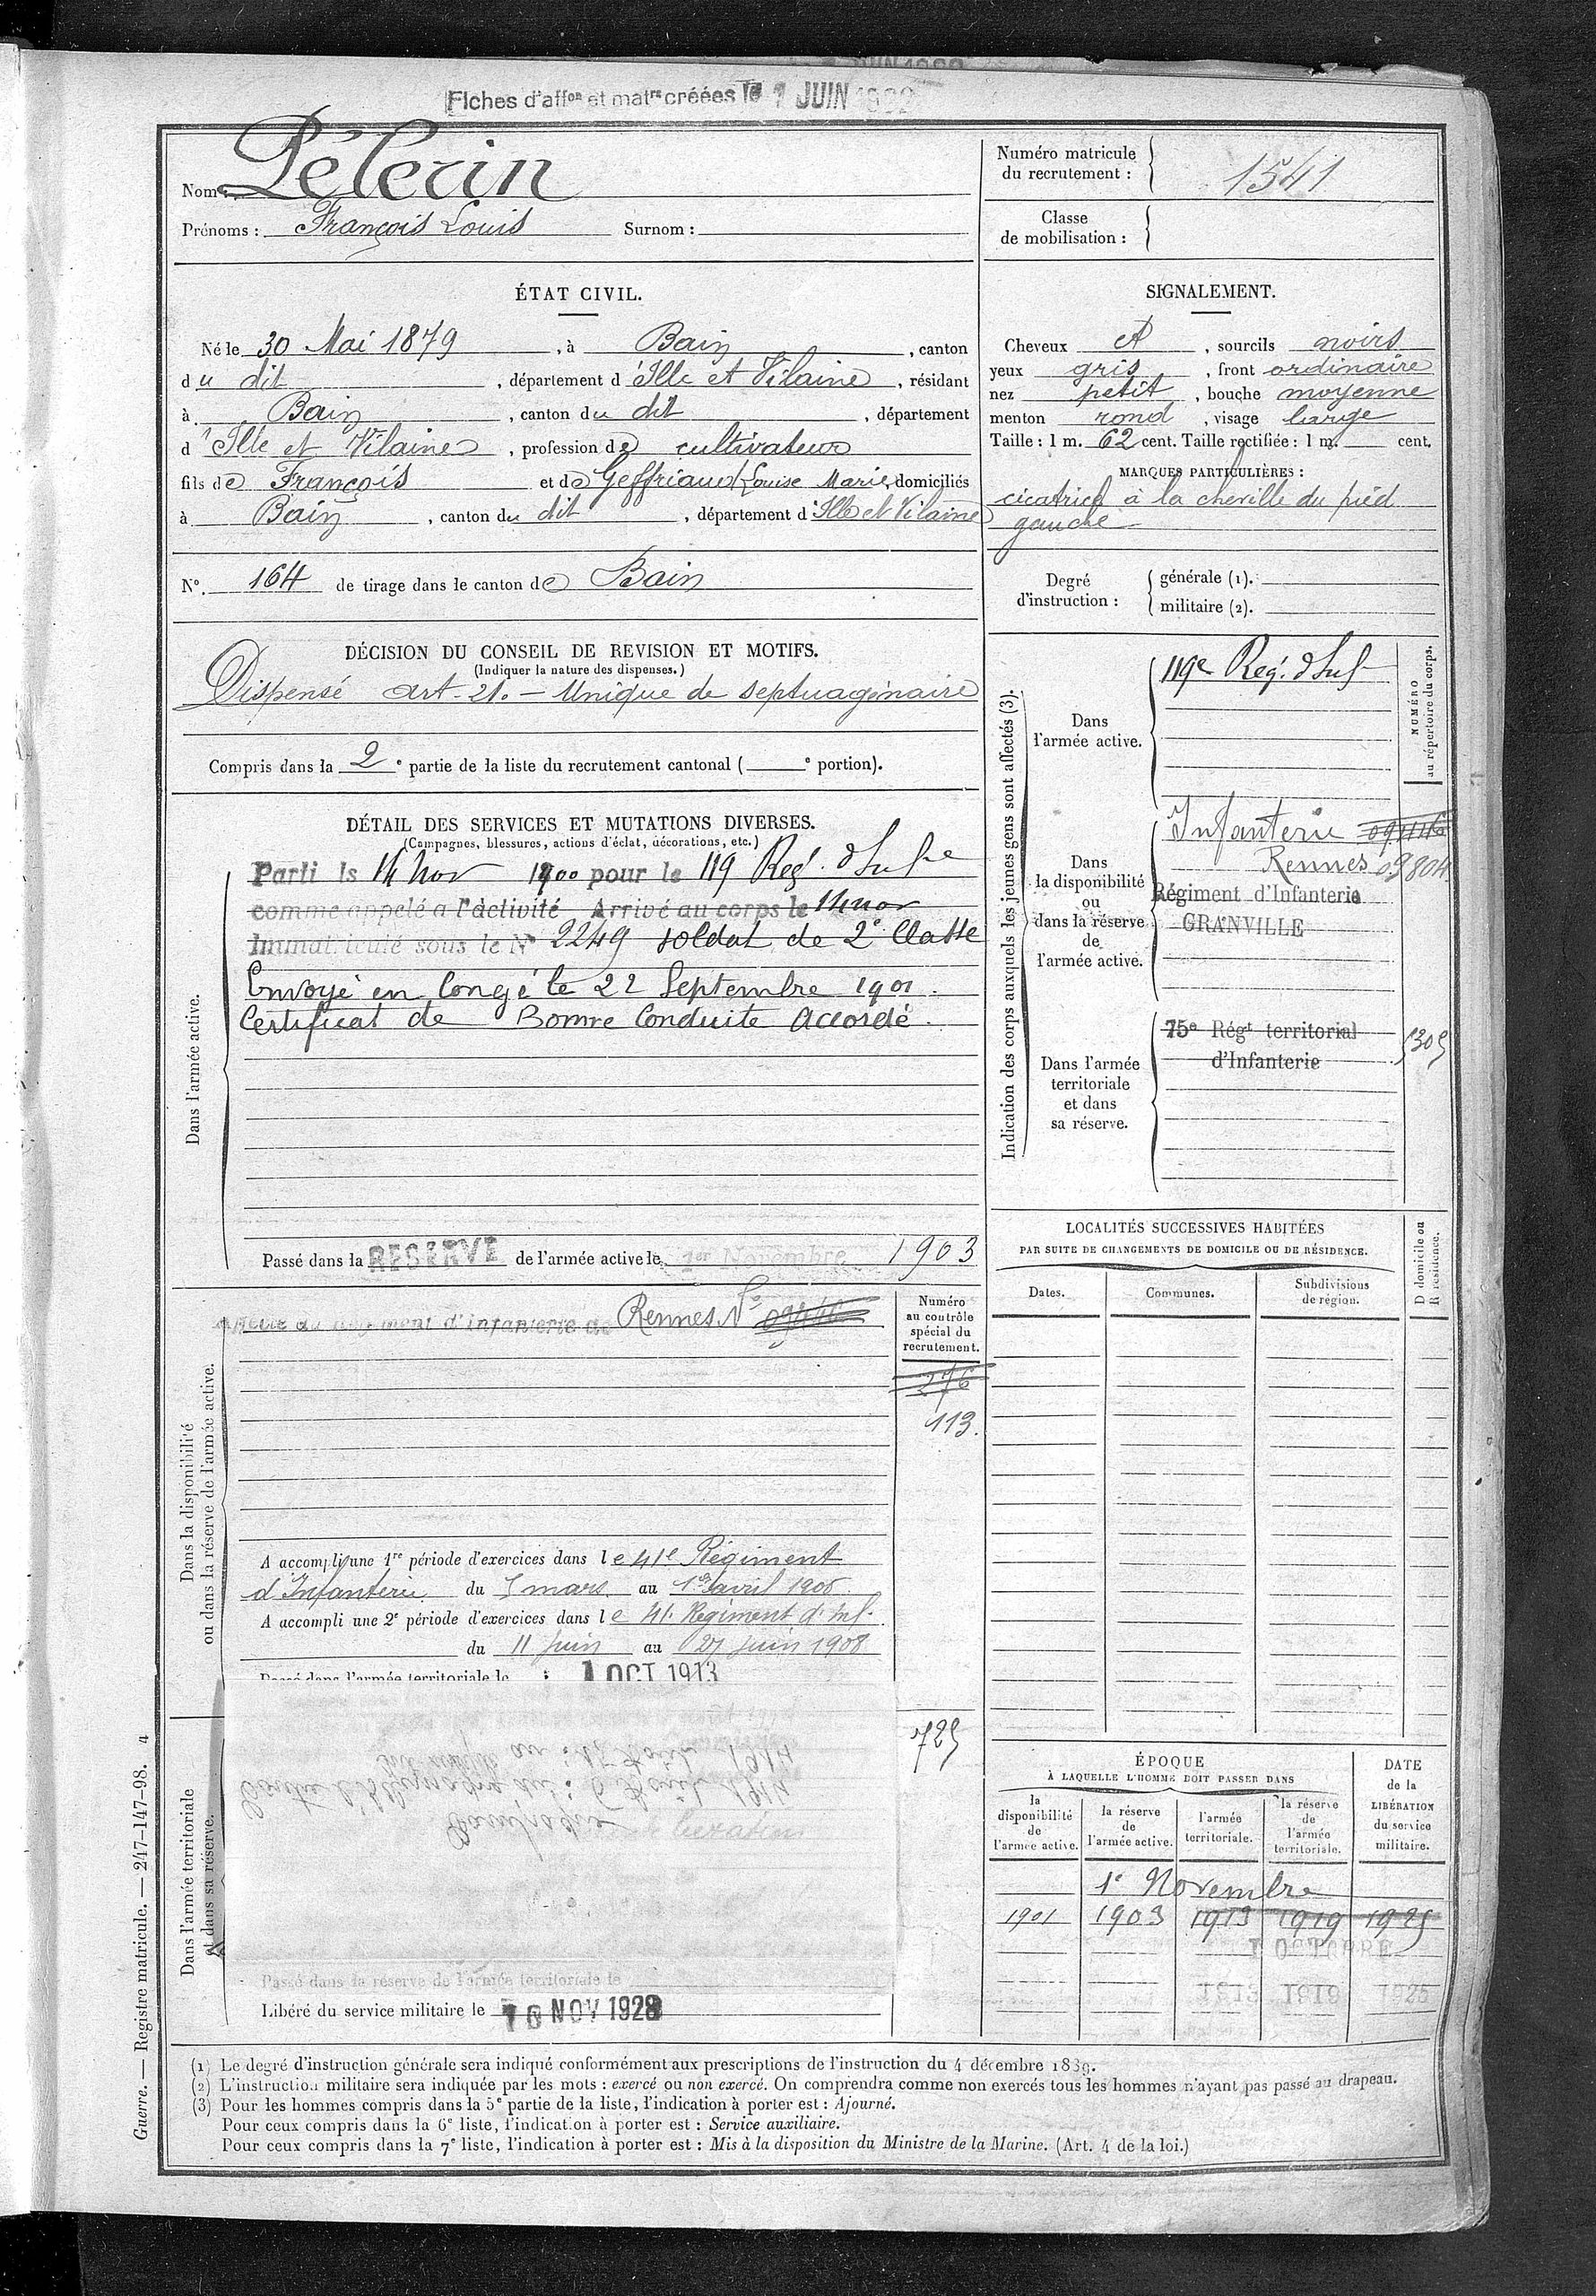 Fiches d'aff^on et mat^re créées le 1 JUIN
Nom : Pélerin
Prénoms : François Louis Surnom :
Numéro matricule du recrutement : 1541
Classe de mobilisation :
ÉTAT CIVIL.
Né le 30 Mai 1879, à Bain, canton
du dit, département d'Ille et Vilaine, résidant
à Bain, canton du dit, département
d'Ille et Vilaine, profession de cultivateur
fils de François et de Geffriaud Louise Marie, domiciliés
à Bain, canton du dit, département d'Ille et Vilaine
N°. 164 de tirage dans le canton de Bain
SIGNALEMENT.
Cheveux et, sourcils noirs
yeux gris, front ordinaire
nez petit, bouche moyenne
menton rond, visage large
Taille : 1 m. 62 cent. Taille rectifiée : 1 m. cent.
MARQUES PARTICULIÈRES :
cicatrice à la cheville du pied
gauche
Degré d'instruction : générale (1).
militaire (2).
DÉCISION DU CONSEIL DE REVISION ET MOTIFS.
(Indiquer la nature des dispenses.)
Dispensé art. 21. – Unique de septuagénaire
Compris dans la 2e partie de la liste du recrutement cantonal ( e portion).
DÉTAIL DES SERVICES ET MUTATIONS DIVERSES.
(Campagnes, blessures, actions d'éclat, décorations, etc.)
Dans l'armée active.
Parti le 14 Nov 1900 pour le 119 Reg. d'Inf^ie
comme appelé à l'activité Arrivé au corps le 14 nov
Immatriculé sous le N° 2249 soldat de 2e Classe
Envoyé en Congé le 22 Septembre 1901.
Certificat de Bonne Conduite Accordé.
Passé dans la RESERVE de l'armée active le 1er Novembre 1903
Indication des corps auxquels les jeunes gens sont affectés (3).
NUMÉRO au répertoire du corps.
Dans l'armée active.
119e Reg. d'Inf
Dans la disponibilité ou dans la réserve de l'armée active.
Infanterie
Rennes 09804
Régiment d'Infanterie
GRANVILLE
Dans l'armée territoriale et dans sa réserve.
75e Rég^t territorial
d'Infanterie
5305
Dans la disponibilité ou dans la réserve de l'armée active.
Affecté au Régiment d'Infanterie de Rennes N°
Numéro au contrôle spécial du recrutement.
276
113.
A accompli une 1re période d'exercices dans le 41e Régiment
d'Infanterie du 5 mars au 1er avril 1906
A accompli une 2e période d'exercices dans le 41. Régiment d'Inf.
du 11 Juin au 27 Juin 1908
Passé dans l'armée territoriale le 1 OCT 1913
Dans l'armée territoriale et dans sa réserve.
725
Passé dans la réserve de l'armée territoriale le
Libéré du service militaire le 10 NOV 1928
LOCALITÉS SUCCESSIVES HABITÉES
PAR SUITE DE CHANGEMENTS DE DOMICILE OU DE RÉSIDENCE.
D domicile ou R résidence.
Dates. Communes. Subdivisions de région.
ÉPOQUE
À LAQUELLE L'HOMME DOIT PASSER DANS
DATE de la LIBÉRATION du service militaire.
la disponibilité de l'armée active.
la réserve de l'armée active.
l'armée territoriale.
la réserve de l'armée territoriale.
1e Novembre
1901 1903 1913 1919 1925
1 OCTOBRE
1913 1919 1925
Guerre. — Registre matricule. — 247-147-98. 4
(1) Le degré d'instruction générale sera indiqué conformément aux prescriptions de l'instruction du 4 décembre 1889.
(2) L'instruction militaire sera indiquée par les mots : exercé ou non exercé. On comprendra comme non exercés tous les hommes n'ayant pas passé au drapeau.
(3) Pour les hommes compris dans la 5e partie de la liste, l'indication à porter est : Ajourné.
Pour ceux compris dans la 6e liste, l'indication à porter est : Service auxiliaire.
Pour ceux compris dans la 7e liste, l'indication à porter est : Mis à la disposition du Ministre de la Marine. (Art. 4 de la loi.)